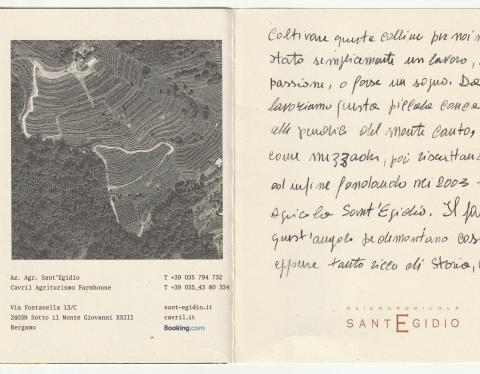 Az. Agr. Sant'Egidio
Cavril Agriturismo Farmhouse
Via Fontanella 13/C
24039 Sotto il Monte Giovanni XXIII
Bergamo
T +39 035 794 732
T +39 035_43 80 334
sant-egidio.it
cavril.it
Booking.com
Coltivare queste colline per noi n
stato semplicemente un lavoro,
passione, o forse un sogno. Da
lavoriamo questa piccola conca
alle pendici del monte Canto,
come mezzadri, poi riscattan
ed infine fondando nel 2003
Agricola Sant'Egidio. Il
quest'angolo pedemontano cos
eppure tanto ricco di storia,
AZIENDAAGRICOLA
SANTEGIDIO